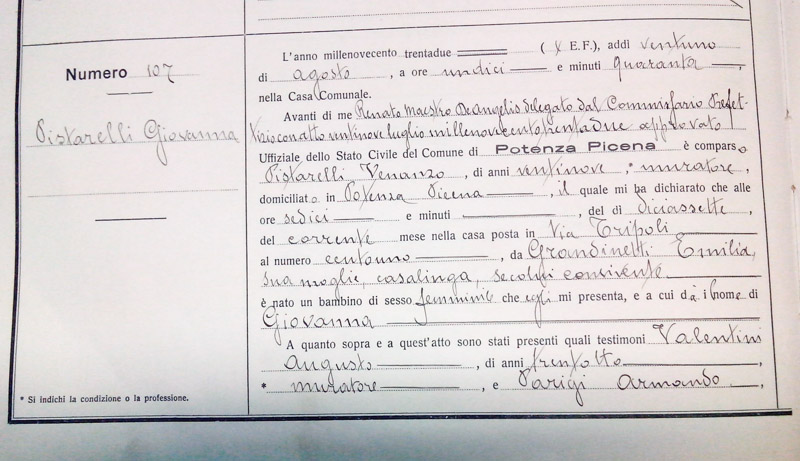 Numero 107
Pistarelli Giovanna
* Si indichi la condizione o la professione.
L'anno millenovecento trentadue (X E.F.), addì ventuno
di agosto, a ore undici e minuti quaranta,
nella Casa Comunale.
Avanti di me Renato Maestro Deangelis delegato dal Commissario Prefet-
tizio con atto ventinove luglio millenovecentotrentadue approvato
Uffiziale dello Stato Civile del Comune di Potenza Picena è comparso
Pistarelli Venanzo, di anni ventinove, * muratore,
domiciliato in Potenza Picena, il quale mi ha dichiarato che alle
ore sedici e minuti, del dì diciassette,
del corrente mese nella casa posta in Via Tripoli
al numero centouno, da Grandinetti Emilia,
sua moglie, casalinga, secolui convivente
è nato un bambino di sesso femminile che egli mi presenta, e a cui dà il nome di
Giovanna
A quanto sopra e a quest'atto sono stati presenti quali testimoni Valentini
Augusto, di anni trentotto,
* muratore, e Parigi Armando,